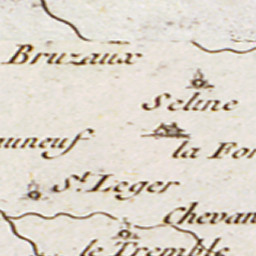 Bruzaux
Seline
uneuf
la For
St. Leger
Chevan
le Tremble